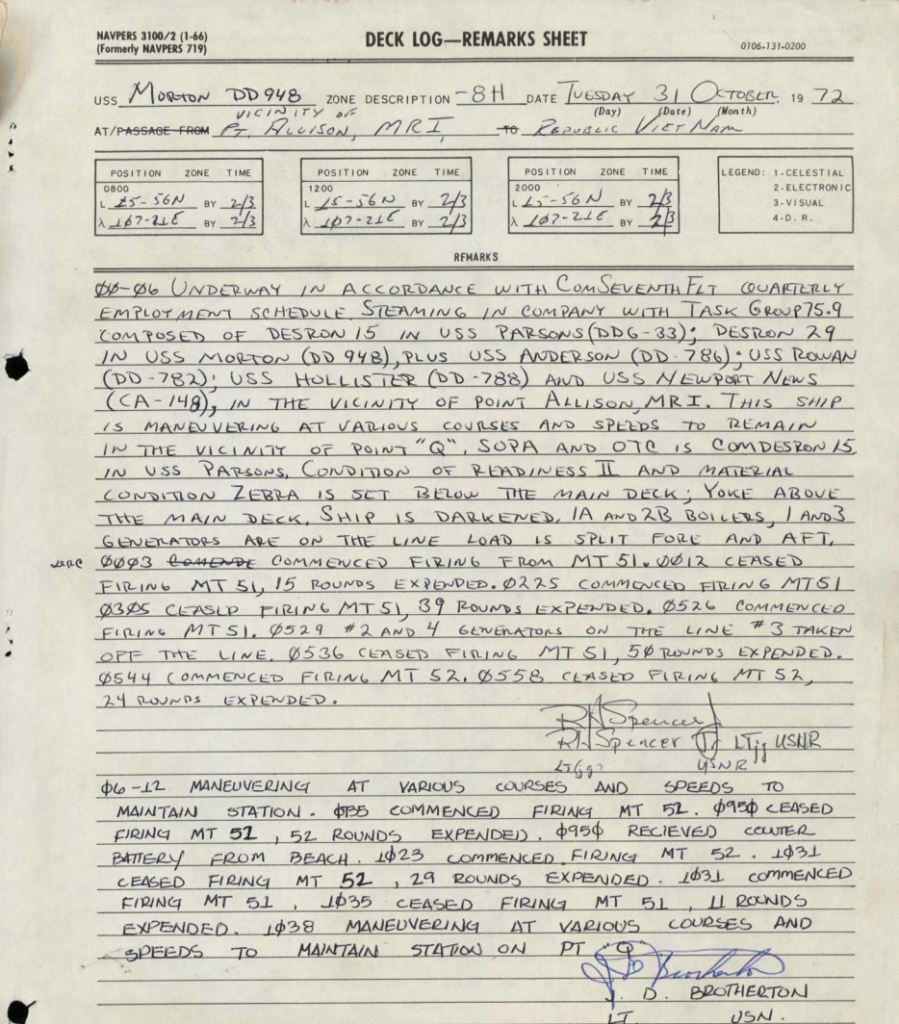 NAVPERS 3100/2 (1-66)
(Formerly NAVPERS 719)
DECK LOG—REMARKS SHEET
0106-131-0200
USS MORTON DD948 ZONE DESCRIPTION -8H DATE TUESDAY 31 OCTOBER 19 72
(Day) (Date) (Month)
VICINITY OF
AT/PASSAGE FROM PT. ALLISON, MRI, TO REPUBLIC VIETNAM
POSITION ZONE TIME
0800
L 15-56N BY 2/3
λ 107-21E BY 2/3
POSITION ZONE TIME
1200
L 15-56N BY 2/3
λ 107-21E BY 2/3
POSITION ZONE TIME
2000
L 15-56N BY 2/3
λ 107-21E BY 2/3
LEGEND: 1-CELESTIAL
2-ELECTRONIC
3-VISUAL
4-D. R.
REMARKS
00-06 UNDERWAY IN ACCORDANCE WITH COMSEVENTHFLT QUARTERLY
EMPLOYMENT SCHEDULE, STEAMING IN COMPANY WITH TASK GROUP 75.9
COMPOSED OF DESRON 15 IN USS PARSONS (DDG-33); DESRON 29
IN USS MORTON (DD 948), PLUS USS ANDERSON (DD-786); USS ROWAN
(DD-782); USS HOLLISTER (DD-788) AND USS NEWPORT NEWS
(CA-148), IN THE VICINITY OF POINT ALLISON, MRI. THIS SHIP
IS MANEUVERING AT VARIOUS COURSES AND SPEEDS TO REMAIN
IN THE VICINITY OF POINT "Q". SOPA AND OTC IS COMDESRON 15
IN USS PARSONS. CONDITION OF READINESS II AND MATERIAL
CONDITION ZEBRA IS SET BELOW THE MAIN DECK; YOKE ABOVE
THE MAIN DECK. SHIP IS DARKENED. 1A AND 2B BOILERS, 1 AND 3
GENERATORS ARE ON THE LINE LOAD IS SPLIT FORE AND AFT.
0003 COMMENCED FIRING FROM MT 51. 0012 CEASED
FIRING MT 51, 15 ROUNDS EXPENDED. 0225 COMMENCED FIRING MT 51
0305 CEASED FIRING MT 51, 39 ROUNDS EXPENDED. 0526 COMMENCED
FIRING MT 51. 0529 #2 AND 4 GENERATORS ON THE LINE #3 TAKEN
OFF THE LINE. 0536 CEASED FIRING MT 51, 50 ROUNDS EXPENDED.
0544 COMMENCED FIRING MT 52. 0558 CEASED FIRING MT 52,
24 ROUNDS EXPENDED.
RH Spencer Jr
RH Spencer Jr LTjg USNR
LTjg USNR
06-12 MANEUVERING AT VARIOUS COURSES AND SPEEDS TO
MAINTAIN STATION. COMMENCED FIRING MT 52. 0950 CEASED
FIRING MT 52, 52 ROUNDS EXPENDED. 0950 RECIEVED COUTER
BATTERY FROM BEACH. 1023 COMMENCED FIRING MT 52. 1031
CEASED FIRING MT 52, 29 ROUNDS EXPENDED. 1031 COMMENCED
FIRING MT 51, 1035 CEASED FIRING MT 51, 11 ROUNDS
EXPENDED. 1038 MANEUVERING AT VARIOUS COURSES AND
SPEEDS TO MAINTAIN STATION ON PT Q
J D Brotherton
J. D. BROTHERTON
LT. USN.